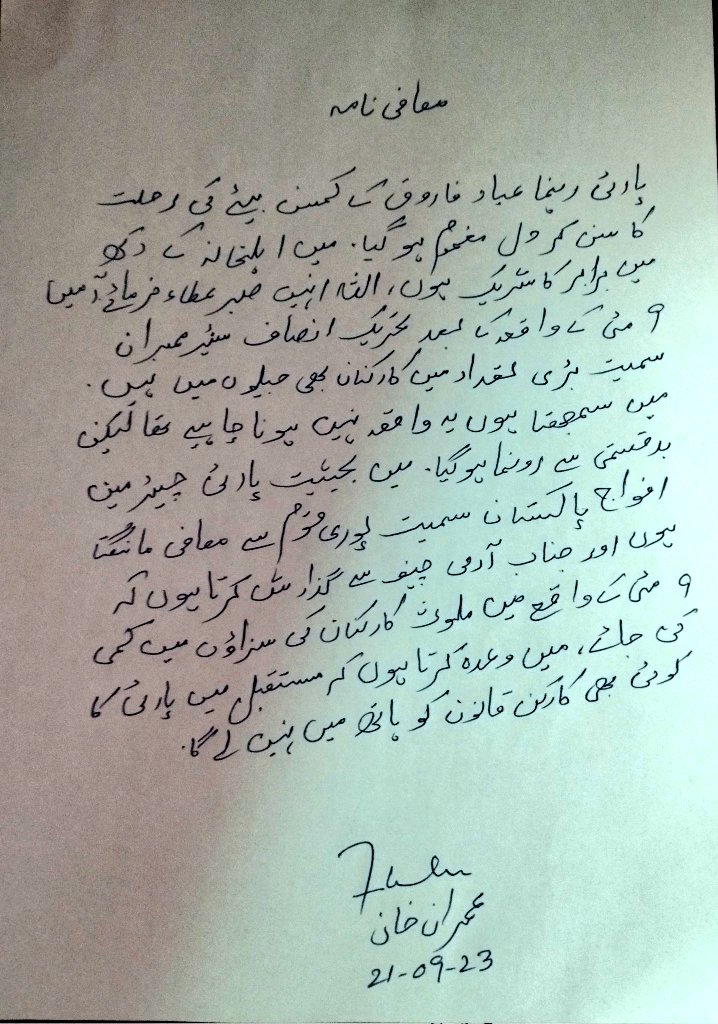 معافی نامہ
پارٹی رہنما عباد فاروق کے کمسن بیٹے کی رحلت
کا سن کر دل مغموم ہو گیا۔ میں اہلخانہ کے دکھ
میں برابر کا شریک ہوں، اللہ انہیں صبر عطاء فرمائے آمین
9 مئی کے واقعہ کے بعد تحریک انصاف سنیئر ممبران
سمیت بڑی تعداد میں کارکنان بھی جیلوں میں ہیں۔
میں سمجھتا ہوں یہ واقعہ نہیں ہونا چاہیے تھا لیکن
بدقسمتی سے رونما ہو گیا۔ میں بحیثیت پارٹی چیئرمین
افواج پاکستان سمیت پوری قوم سے معافی مانگتا
ہوں اور جناب آرمی چیف سے گذارش کرتا ہوں کہ
9 مئی کے واقع میں ملوث کارکنان کی سزاؤں میں کمی
کی جائے، میں وعدہ کرتا ہوں کہ مستقبل میں پارٹی کا
کوئی بھی کارکن قانون کو ہاتھ میں نہیں لے گا۔
عمران خان
21-09-23